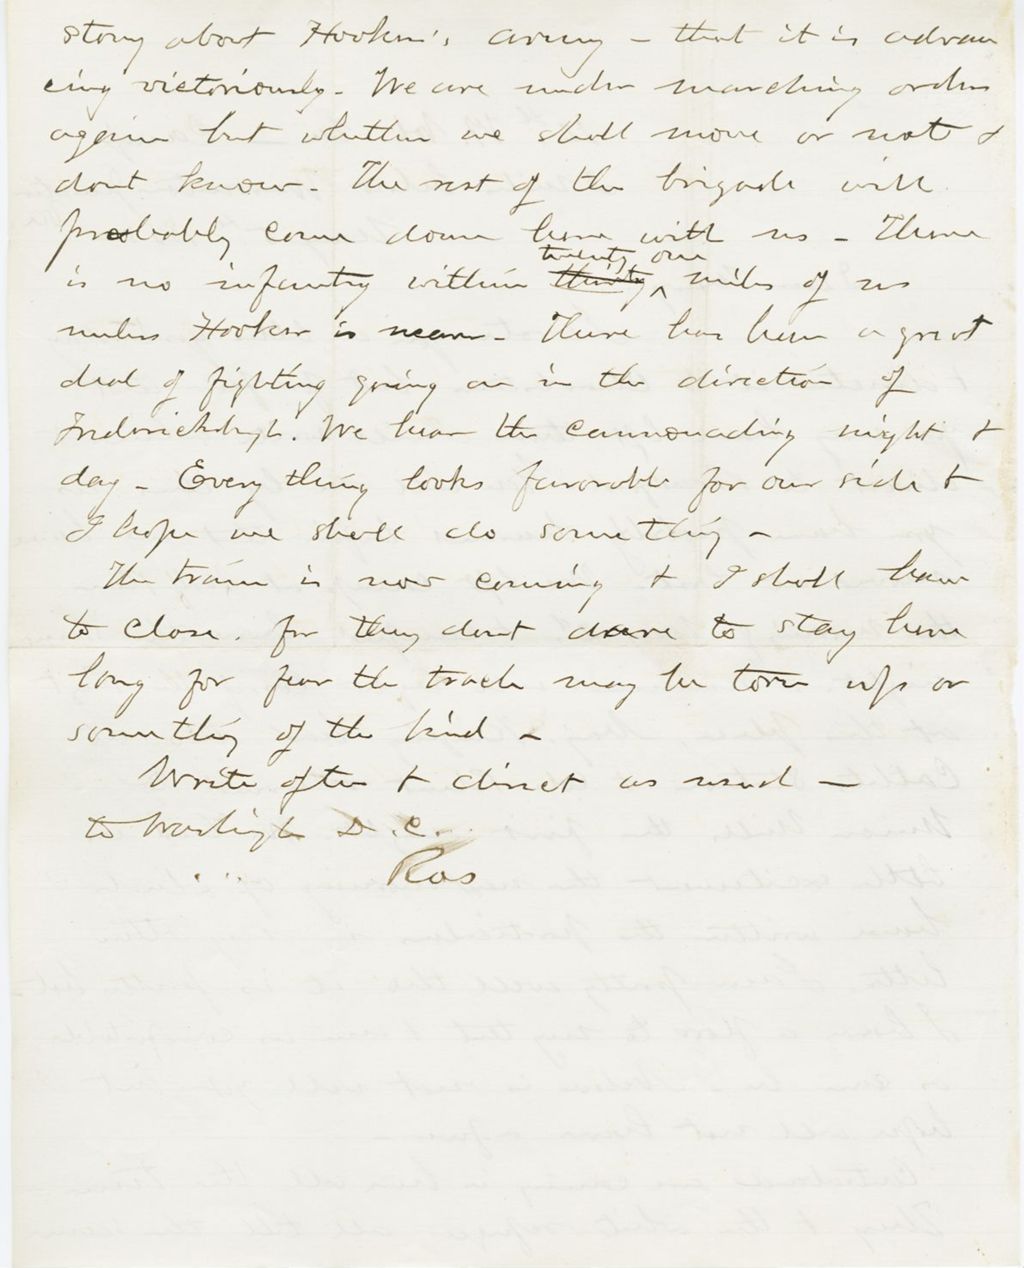 story about Hooker's army - that it is advan
cing victoriously - We are under marching orders
again but whether we shall move or not I
dont know - The rest of the brigade will
probably come down here with us - There
is no infantry within thirty twenty one miles of us
unless Hooker is near - There has been a great
deal of fighting going on in the direction of
Fredericksbugh. We hear the cannonading night &
day - Every thing looks favorable for our side &
I hope we shall do something -
The train is now coming & I shall have
to close. for they dont dare to stay here
long for fear the track may be torn up or
something of the kind -
Write often & direct as usual -
to Washingtn D.C.
Ros